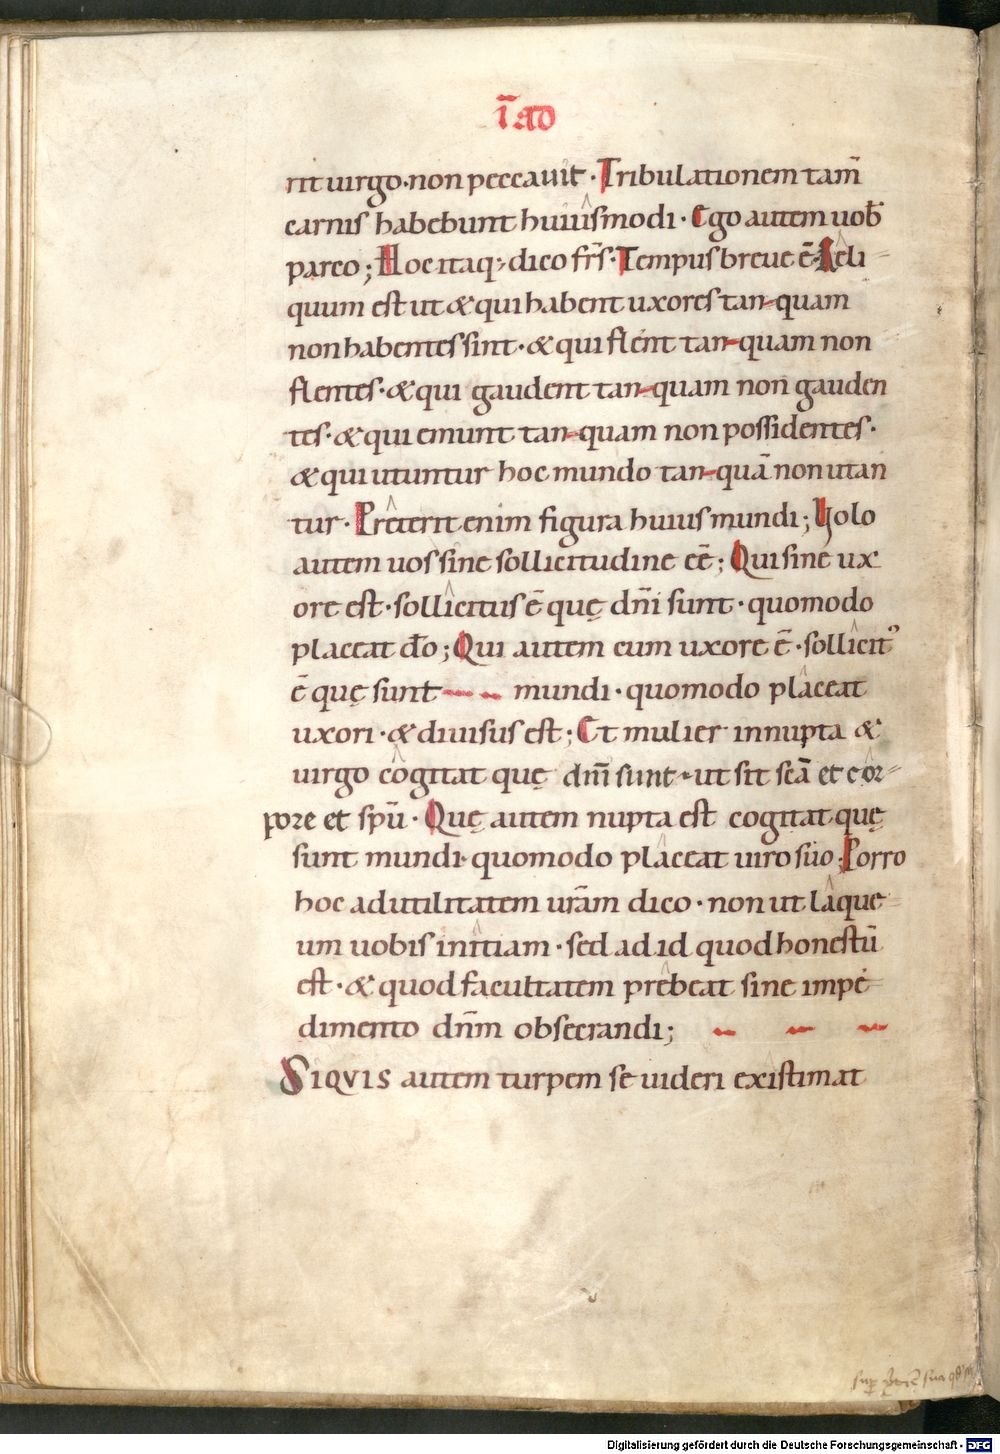 ī ad
rit uirgo·non peccauit · Tribulationem tam̄
carnis habebunt huiusmodi · Ego autem uob̄
parco; Hoc itaq; dico fr̄s· Tempus breue ē· Reli
quum est ut & qui habent uxores tanquam
non habentes sint · & qui flent tanquam non
flentes· & qui gaudent tanquam non gauden
tes· & qui emunt tanquam non possidentes·
& qui utuntur hoc mundo tanquā non utan
tur · Pręterit enim figura huius mundi; Uolo
autem uos sine sollicitudine eē; Qui sine ux
ore est· sollicitus ē quę dn̄i sunt · quomodo
placeat dō; Qui autem cum uxore ē · sollicit᾽
ē quę sunt mundi · quomodo placeat
uxori · & diuisus est; Et mulier innupta &
uirgo cogitat quę dn̄i sunt · ut sit scā et cor
pore et spū · Quę autem nupta est cogitat quę
sunt mundi· quomodo placeat uiro suo; Porro
hoc ad utilitatem ur̄am dico · non ut laque
um uobis initiam · sed ad id quod honestū
est · & quod facultatem prebeat sine impe
dimento dn̄m obsecrandi;
SIQVIS autem turpem se uideri existimat
Digitalisierung gefördert durch die Deutsche Forschungsgemeinschaft - DFG